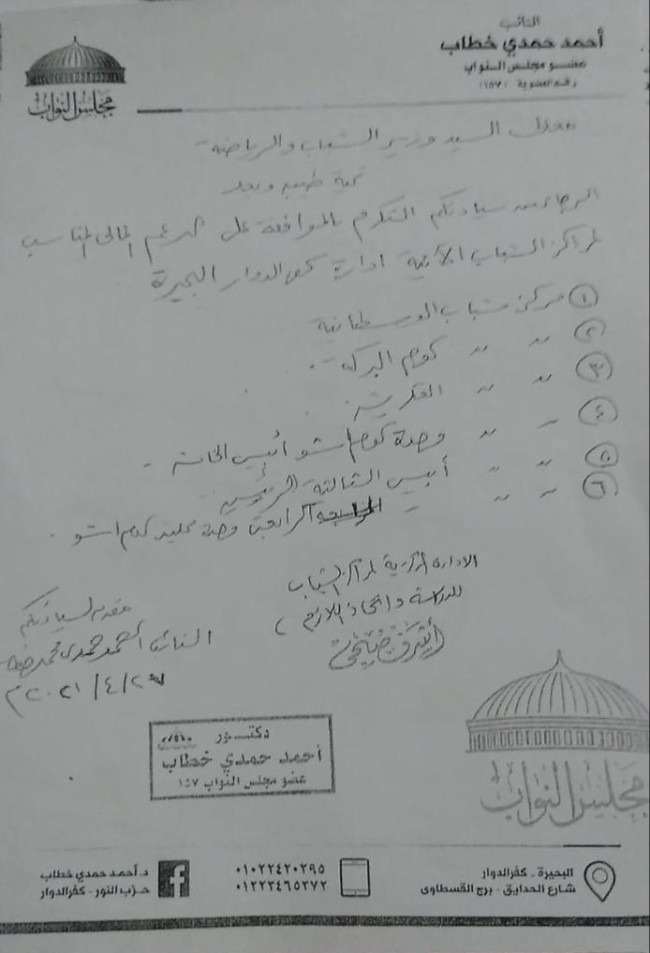 النائب
أحمد حمدي خطاب
عضو مجلس النواب
رقم العضوية (١٥٧)
مجلس النواب
معالى السيد وزير الشباب والرياضة
تحية طيبة وبعد
الرجاء من سيادتكم التكرم بالموافقة على الدعم المالى المناسب
لمراكز الشباب الآتية ادارة كفر الدوار البحيرة
١ مركز شباب الوسطانية
٢ " " كوم البركة
٣ " " العكريشة
٤ " " وحدة كوم اشو انيس الخامسة
٥ " " أبيس الثالثة
٦ " " الرابعة وحدة كوم اشو
الادارة المركزية لمراكز الشباب
للدراسة واتخاذ اللازم
مقدمه لسيادتكم
النائب أحمد حمدى محمد خطاب
٢٠٢١/٤/٢٧م
دكتور
أحمد حمدي خطاب
عضو مجلس النواب ١٥٧
مجلس النواب
البحيرة - كفرالدوار
شارع الحدايق - برج القسطاوى
٠١٠٢٢٤٢٠٢٩٥
٠١٢٢٣٤٦٥٢٧٢
د.أحمد حمدي خطاب
حزب النور - كفرالدوار